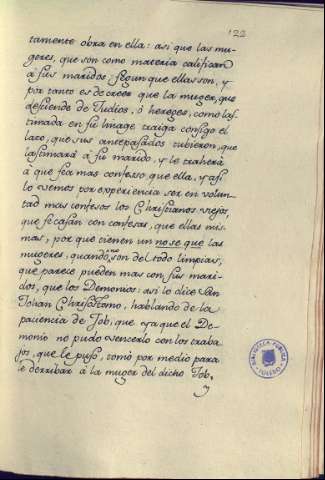 122
tamente obra en ella: asi que las mu-
geres, que son como materia califican
à sus maridos, segun que ellas son, y
por tanto es de creer que la muger, que
desciende de Judios, ò hereges, como las-
timada en su linage traiga consigo el
laço, que sus antepasados tubieron, que
lastimarà à su marido, y le traherà
à que sea mas confesso, que ella, y asi
lo vemos por experiencia ser en volun-
tad mas confesos los Christianos viejos,
que se casan con confesas, que ellas mis-
mas, por que tienen un no se que las
mugeres, quando no son de todo limpias,
que parece pueden mas con sus mari-
dos, que los Demonios: asi lo dice San
Johan Chrisostomo, hablando de la
paciencia de Job, que ya que el De-
monio no pudo vencerlo con los traba-
jos, que le puso, tomò por medio para
le derribar à la muger del dicho Job,
y
BIBLIOTECA PUBLICA
TOLEDO